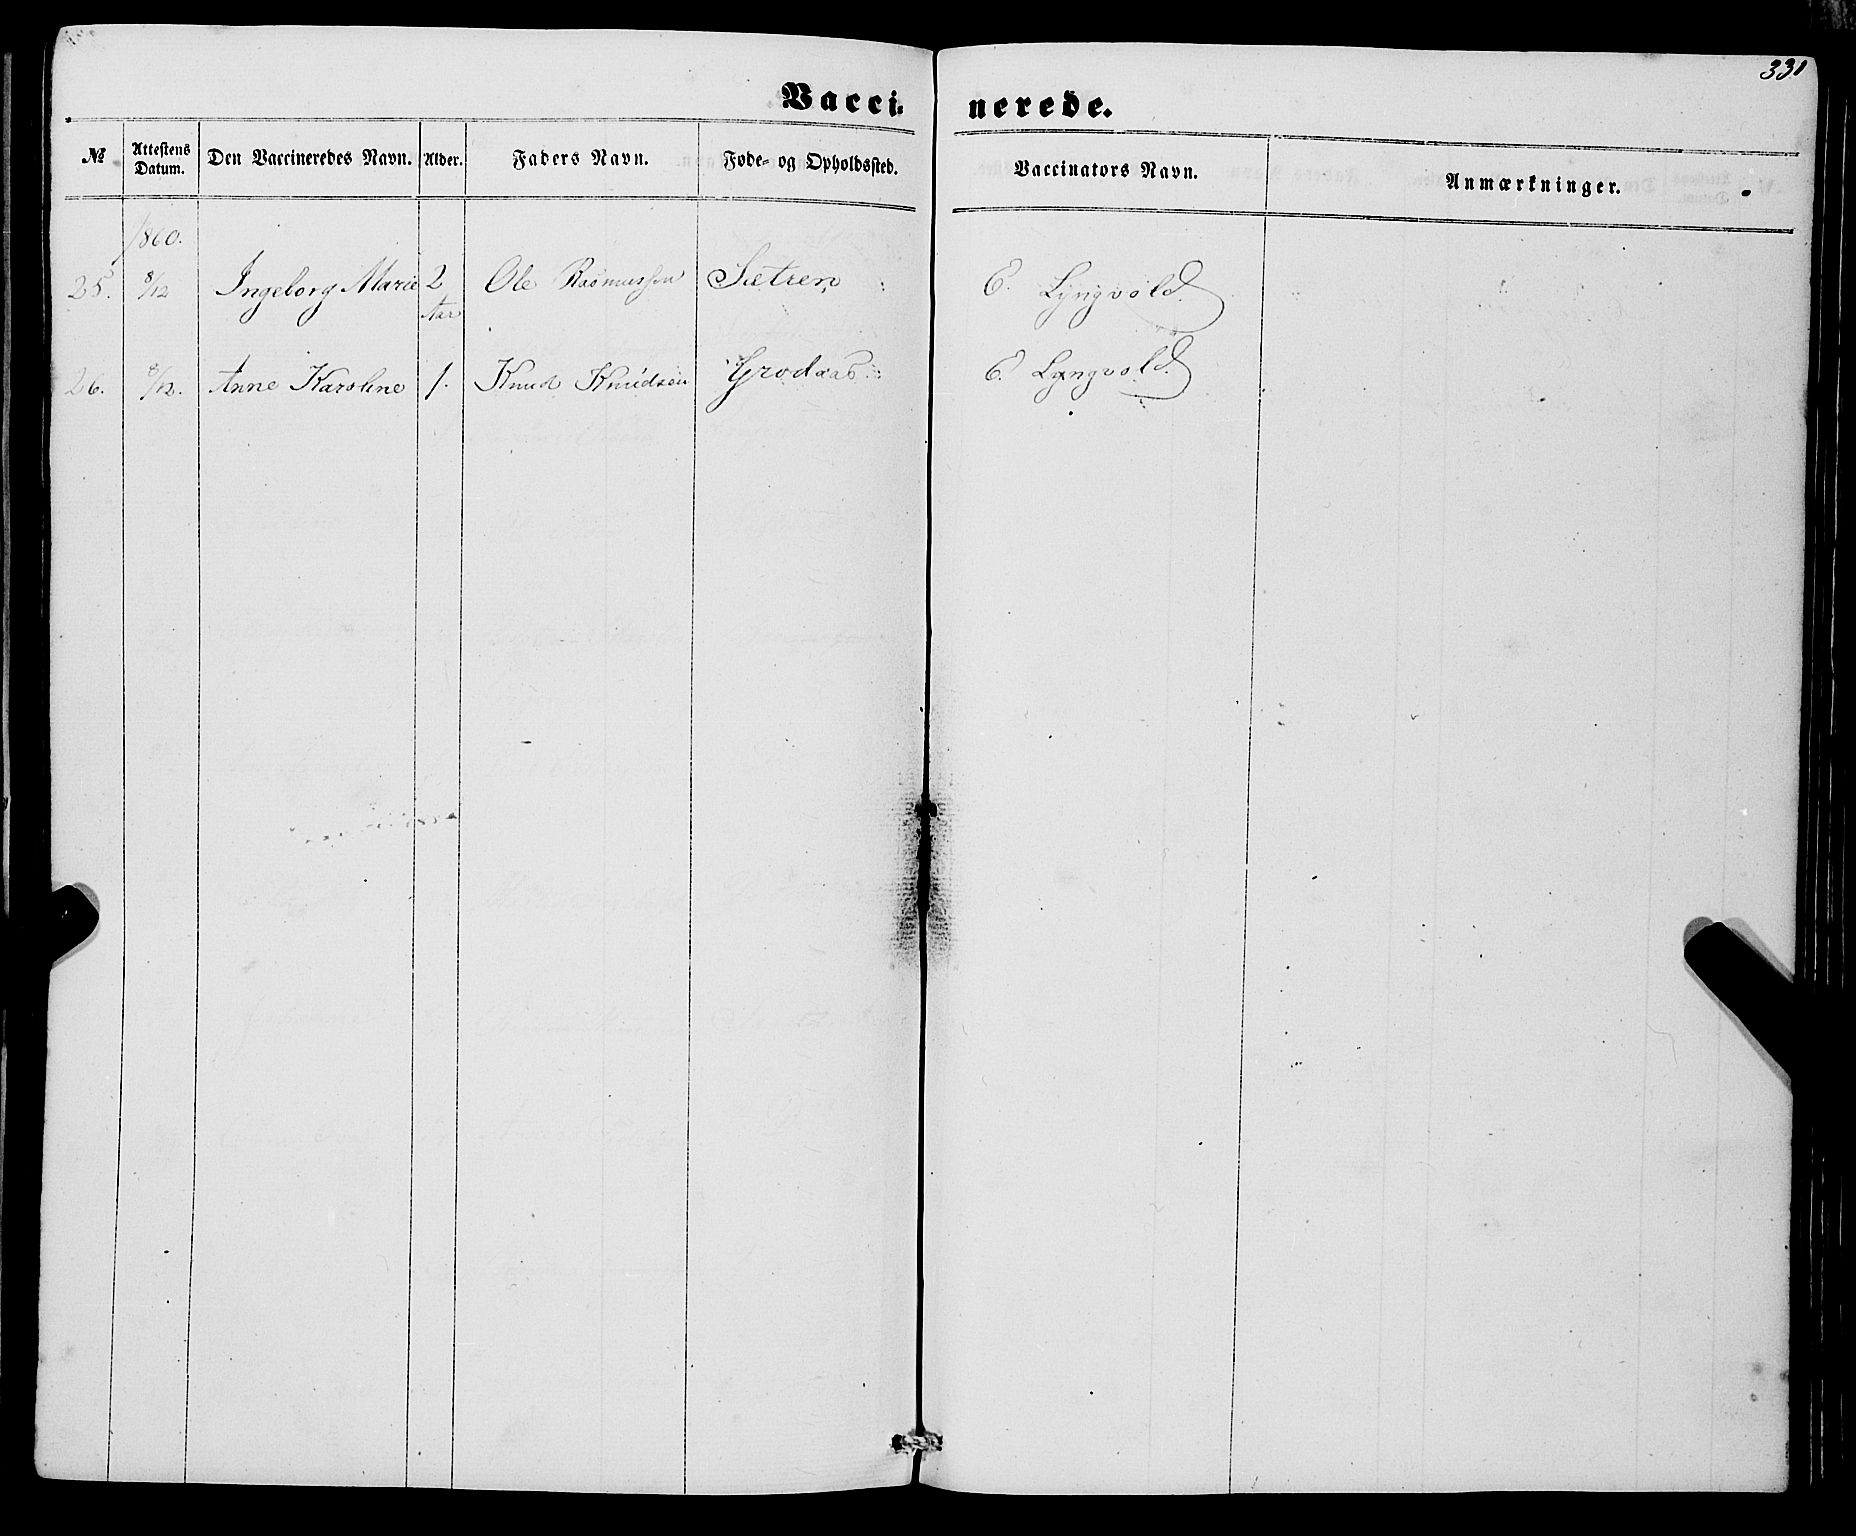 331
Vacci- nerede.
№ Attestens Datum. Den Vaccineredes Navn. Alder. Faders Navn. Føde- og Opholdssted. Vaccinators Navn. Anmærkninger.
1860.
25. 8/12 Ingeborg Marie 2 Aar Ole Rasmussen Sætren E. Lyngvold
26. 8/12. Anne Karoline 1. Knud Knudsen Grodaas E. Lyngvold